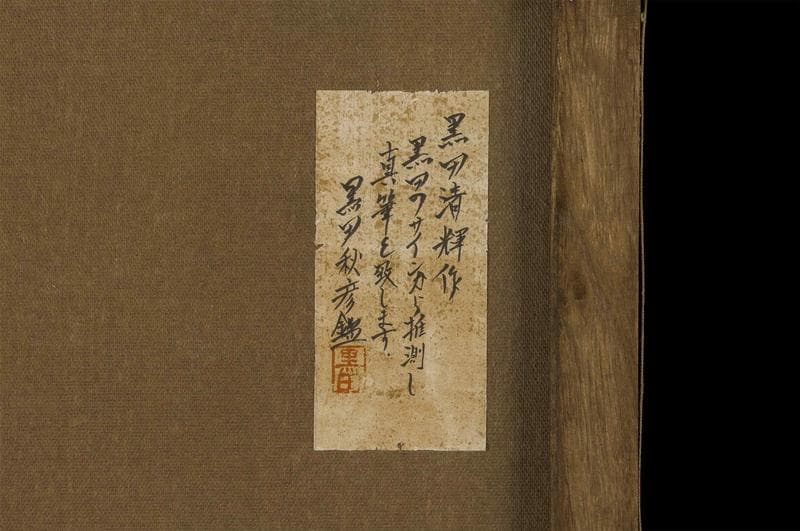 黒田清輝作
黒田のサインから推測し
真筆と致します.
黒田秋彦鑑
黒田